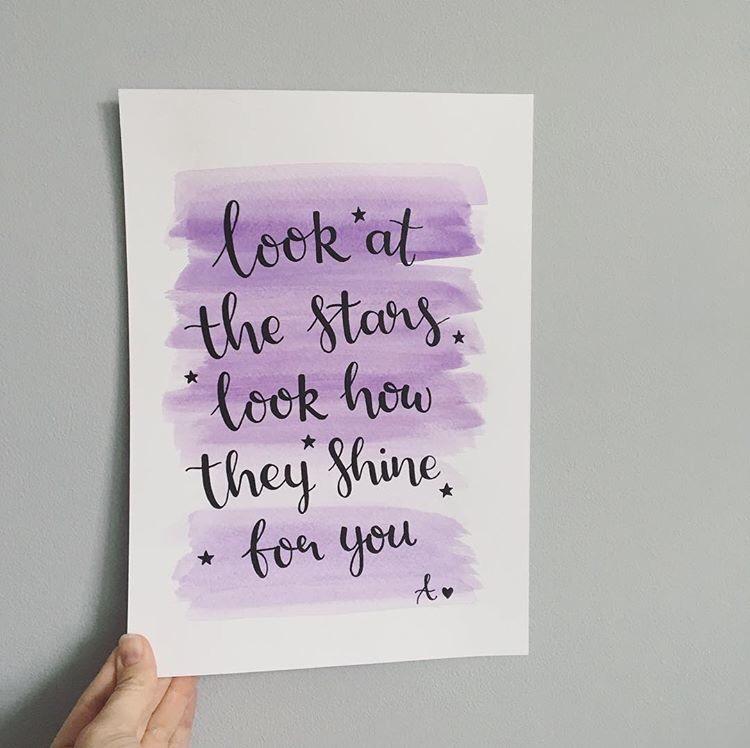 look at
the stars
look how
they shine
for you
A ♥